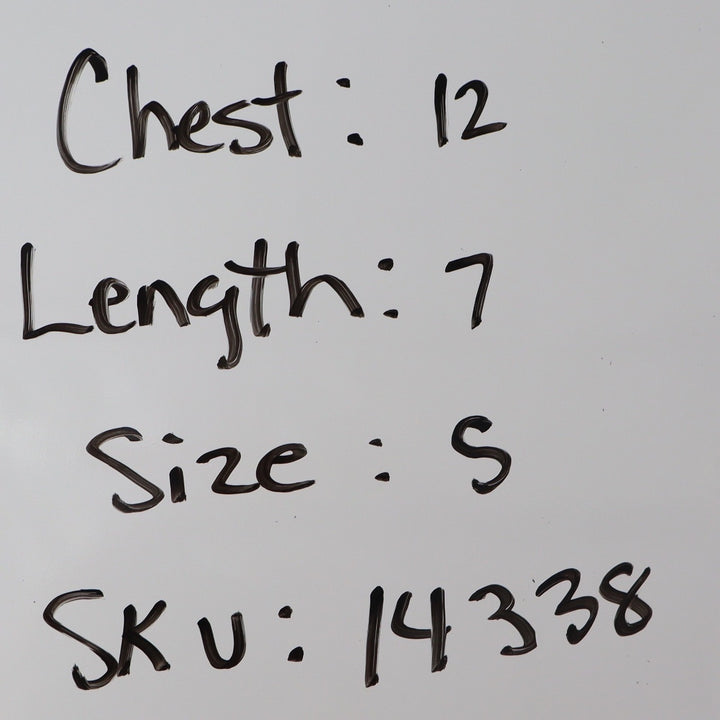 Chest: 12
Length: 7
Size: S
SKU: 14338